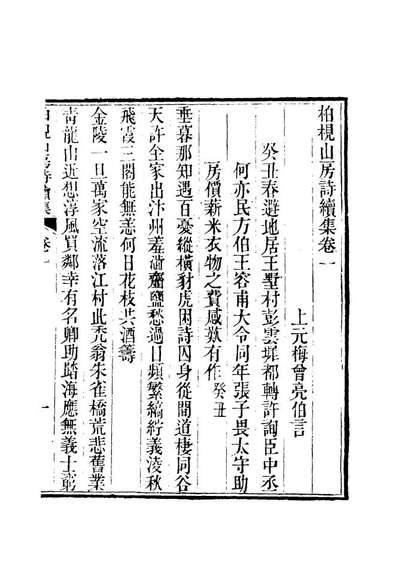 柏梘山房詩續集卷一
上元梅曾亮伯言
癸丑春避地居王墅村彭雲墀都轉許詢臣中丞
何亦民方伯王容甫大令同年張子畏太守助
房價薪米衣物之費感欵有作癸丑
垂暮那知遇百憂縱橫豺虎困詩囚身從間道棲同谷
天許全家出汴州虀鹽愁過日頻繁縞紵義淩秋
飛霞三閣能無恙何日花枝共酒籌
金陵一旦萬家空流落江村此禿翁朱雀橋荒悲舊業
青龍山近想淳風買鄰幸有名卿助蹈海應無義士窮
柏梘山房詩續集
卷一
一